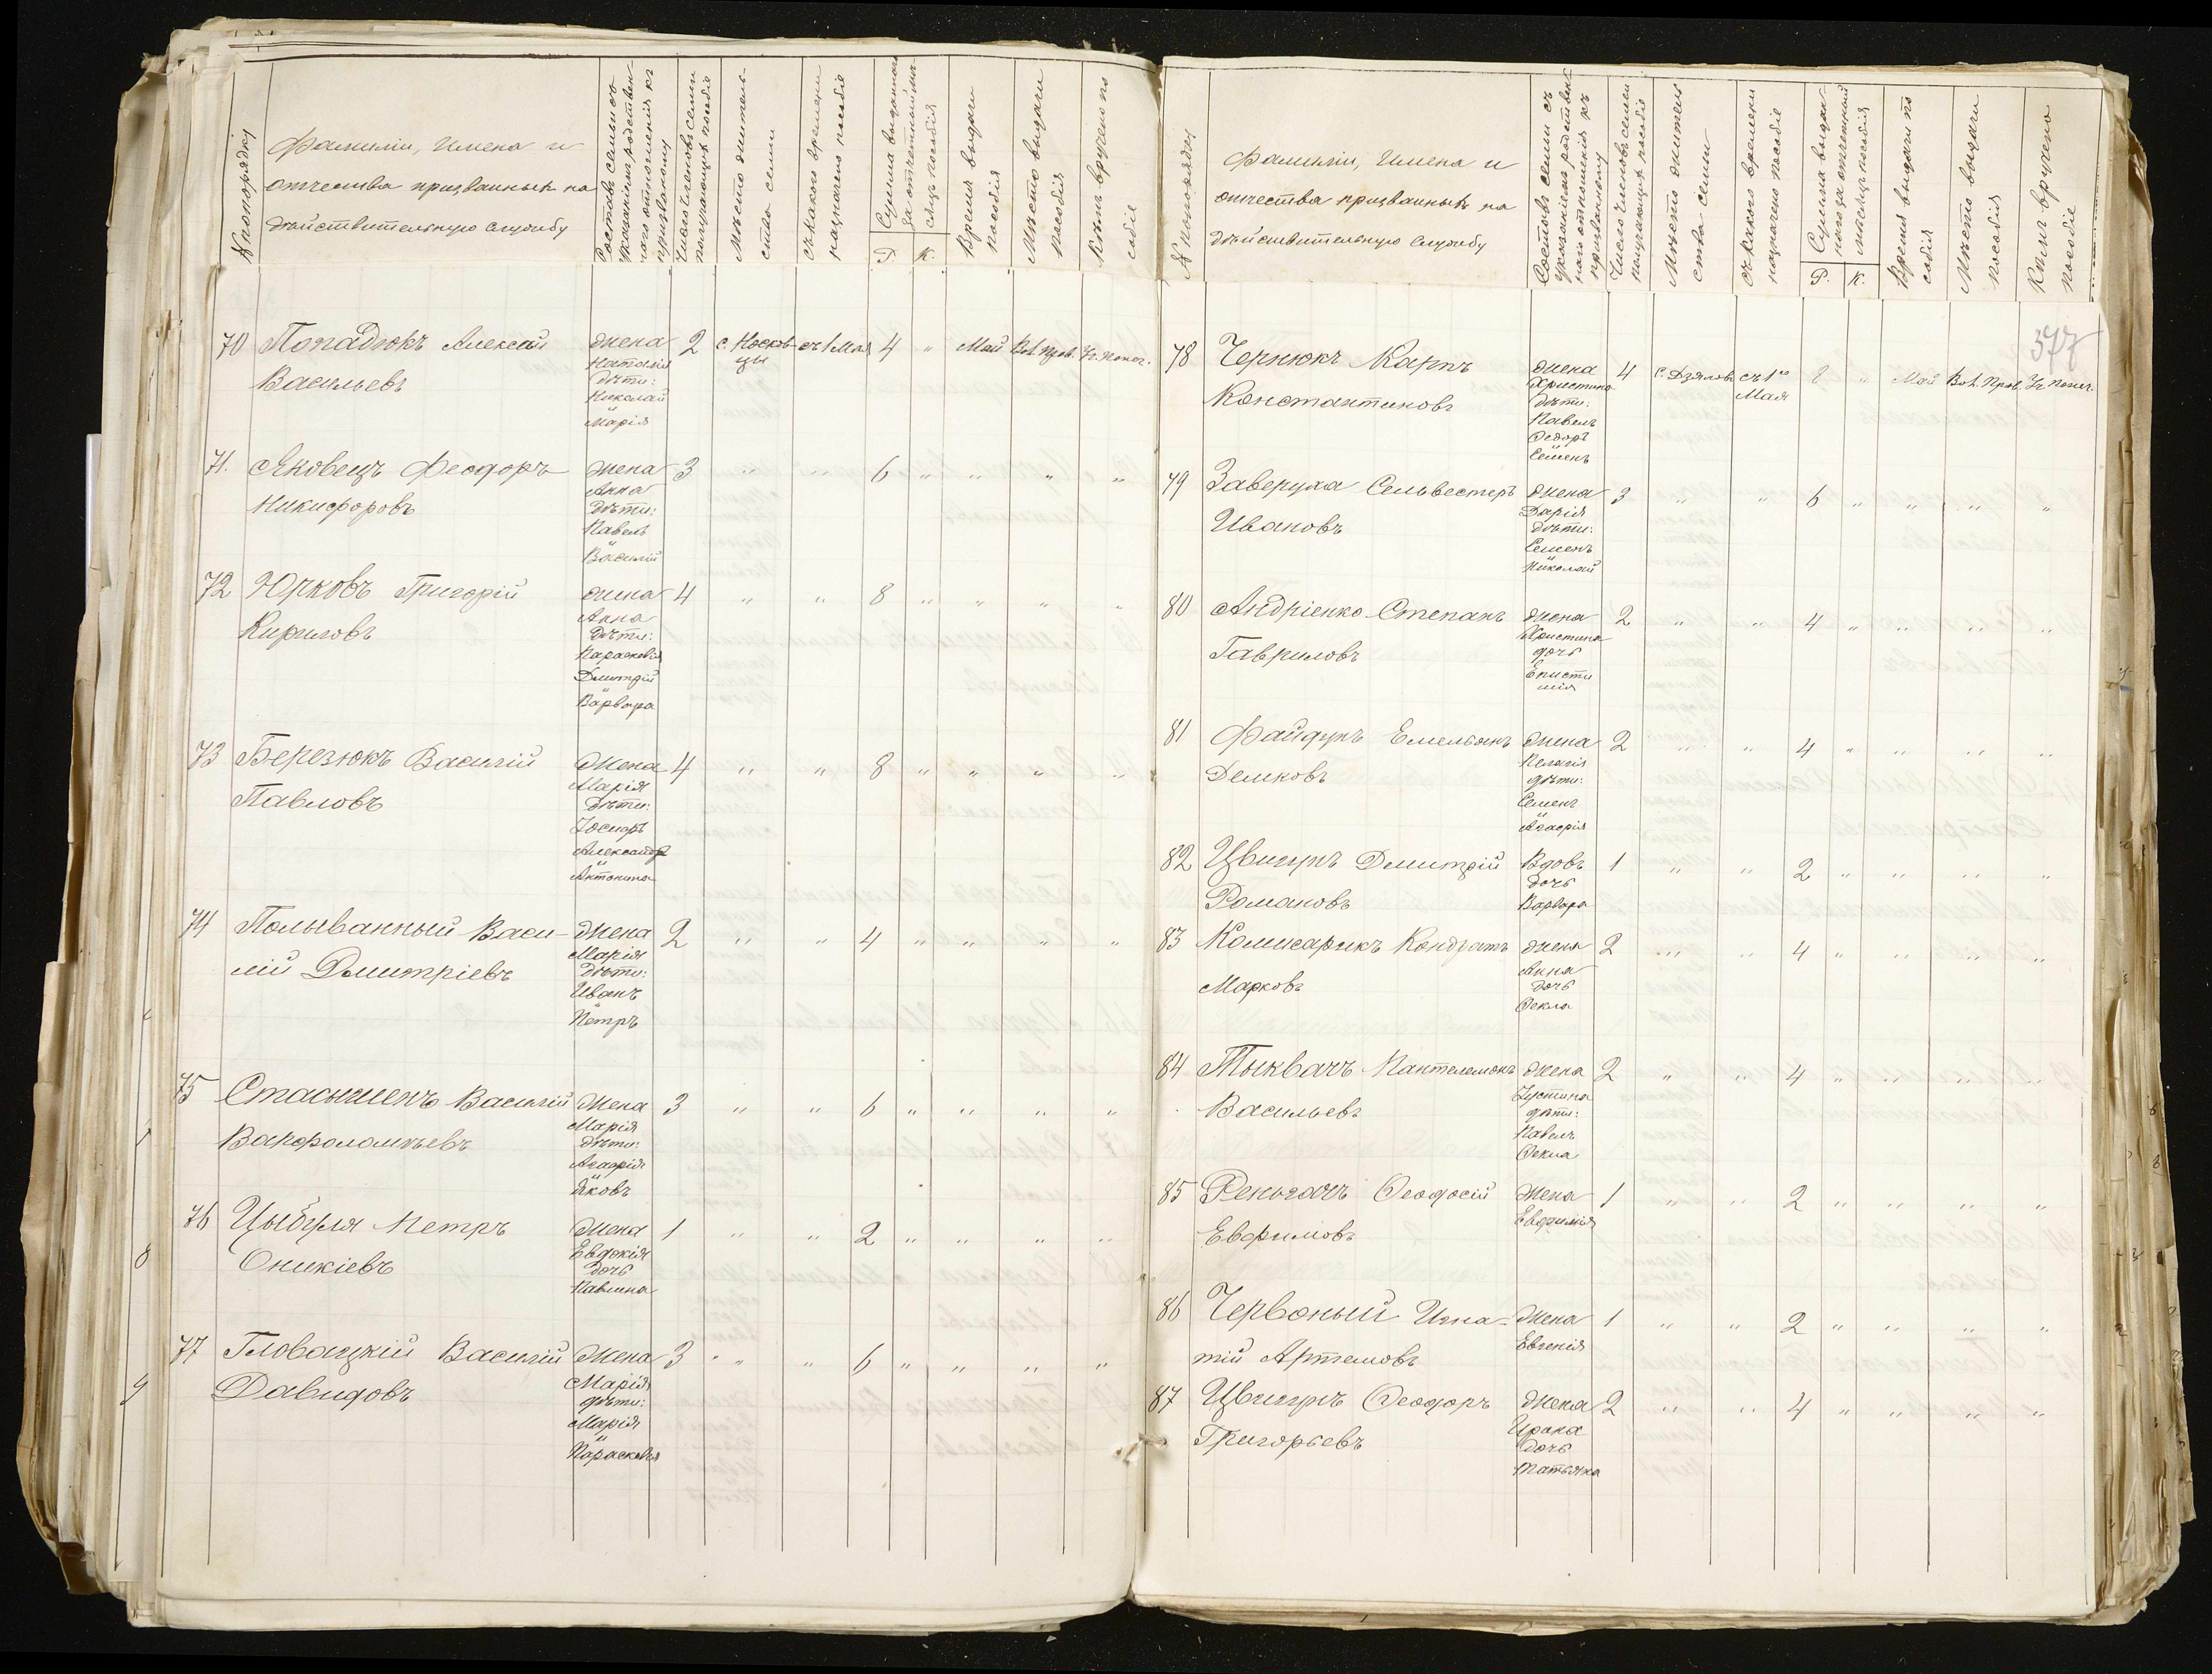 № по порядку
Фамиліи, Имена и
отчества призванныхъ на
дѣйствительную службу
Составъ семьи съ
указаніемъ родствен-
наго отношенія къ
призванному
Число членовъ семьи
получающихъ пособіе
Мѣсто житель-
ства семьи
съ какого времени
назначено пособіе
Сумма выданнаго
за отчетный мѣ-
сяцъ пособія
Р. К.
Время выдачи
пособія
Мѣсто выдачи
пособія
Кѣмъ вручено по-
собіе
70 Попадюкъ Алексѣй жена 2 с. Носков- съ 1 Мая 4 " Май Вол. Прав. Уч. Попеч.
Наталія цы
Васильевъ Дѣти:
Николай
и
Марія
71. Яковецъ Феодоръ жена 3 " " 6 " " " "
Анна
Никифоровъ Дѣти:
Павелъ
и
Василій
72 Юрковъ Григорій жена 4 " " 8 " " " "
Анна
Кириловъ Дѣти:
Параскевія
Дмитрій
и
Варвара
73 Березюкъ Василій Жена 4 " " 8 " " " "
Марія
Павловъ Дѣти:
Іосифъ
Александръ
и
Антонина
74 Полыванный Васи- жена 2 " " 4 " " " "
Марія
лій Дмитріевъ Дѣти:
Иванъ
и
Петръ
75 Стасышенъ Василій Жена 3 " " 6 " " " "
Марія
Варфоломѣевъ Дѣти:
Агафія
и
Яковъ
76 Цыбуля Петръ Жена 1 " " 2 " " " "
Евдокія
Оникіевъ Дочь
Павлина
77 Гловацкій Василій Жена 3 " " 6 " " " "
Марія
Давидовъ дѣти:
Марія
и
Параскевія
377
№ по порядку
Фамиліи, Имена и
отчества призванныхъ на
дѣйствительную службу
Составъ семьи съ
указаніемъ родствен-
наго отношенія къ
призванному
Число членовъ семьи
получающихъ пособіе
Мѣсто житель-
ства семьи
съ какого времени
назначено пособіе
Сумма выдан-
наго за отчетный
мѣсяцъ пособія
Р. К.
Время выдачи по-
собія
Мѣсто выдачи
пособія
Кѣмъ вручено
пособіе
78 Чернюкъ Карпъ жена 4 с. Дзяловъ съ 1го 8 " Май Вол. Прав. Уч. Попеч.
Христина Мая
Константиновъ Дѣти:
Павелъ
Ѳедоръ
Семенъ
79 Заверуха Сельвестеръ жена 3 " " 6 " " " "
Дарія
Ивановъ Дѣти:
Семенъ
и
Николай
80 Андріенко Степанъ жена 2 " " 4 " " " "
Христина
Гавриловъ дочь
Еписти
мія
81 Файфуръ Емельянъ Жена 2 " " 4 " " " "
Пелагія
Демковъ дѣти:
Семенъ
и
Агафія
82 Цвигунъ Дмитрій Вдовъ 1 " " 2 " " " "
Дочь
Романовъ Варвара
83 Комисарукъ Кондратъ жена 2 " " 4 " " " "
Анна
Марковъ дочь
Ѳекла
84 Тыквачъ Пантелемонъ Жена 2 " " 4 " " " "
Іустина
Васильевъ дѣти:
Павелъ
Ѳекла
85 Реньгачъ Ѳеодосій Жена 1 " " 2 " " " "
Евфимія
Евфимовъ
86 Червоный Игна- Жена 1 " " 2 " " " "
Евгенія
тій Артемовъ
87 Цвигунъ Ѳеодоръ жена 2 " " 4 " " " "
Ирина
Григорьевъ Дочь
Татьяна